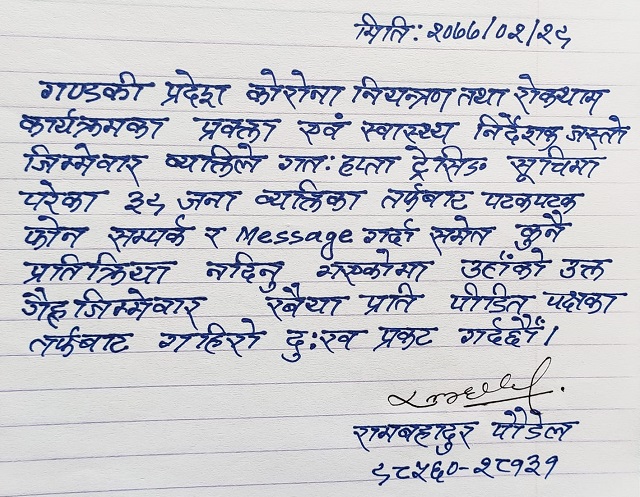 मिति: २०७७/०२/२९
गण्डकी प्रदेश कोरोना नियन्त्रण तथा रोकथाम
कार्यक्रमका प्रवक्ता एवं स्वास्थ्य निर्देशक जस्तो
जिम्मेवार व्यक्तिले गत: हप्ता ट्रेसिङ सूचिमा
परेका ३९ जना व्यक्तिका तर्फबाट पटकपटक
फोन सम्पर्क र Message गर्दा समेत कुनै
प्रतिक्रिया नदिनु भएकोमा उहाँको उक्त
गैह्रजिम्मेवार रबैया प्रति पीडित पक्षका
तर्फबाट गहिरो दु:ख प्रकट गर्दछौं।
रामबहादुर पौडेल
९८५६०-२८१३१